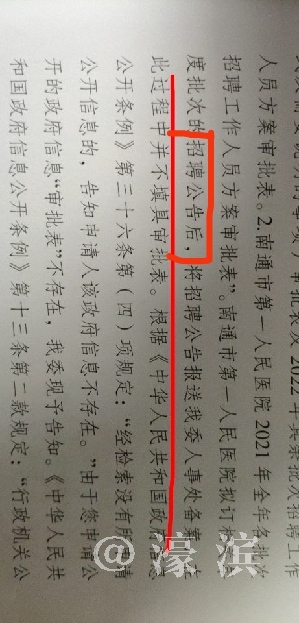 审批表及2022年批次招聘工作
人员方案审批表。2.南通市第一人民医院2021年全年各批次
招聘工作人员方案审批表”。南通市第一人民医院拟订
度批次的招聘公告后，将招聘公告报送我委人事处备案，在
此过程中并不填具审批表。根据《中华人民共和国政府信息
公开条例》第三十六条第（四）项规定：“经检索没有所申请
公开信息的，告知申请人该政府信息不存在。”由于您申请公
开的政府信息“审批表”不存在，我委现予告知。《中华人民共
和国政府信息公开条例》第十三条第二款规定：“行政机关公
@濠滨